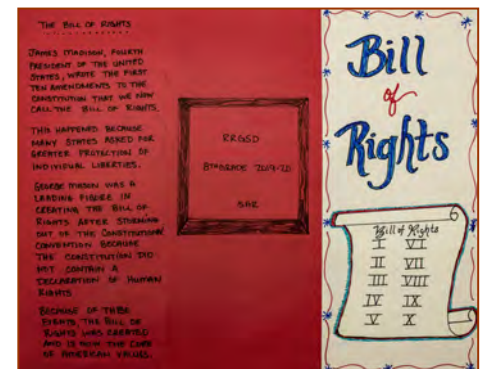 THE BILL OF RIGHTS
JAMES MADISON, FOURTH
PRESIDENT OF THE UNITED
STATES, WROTE THE FIRST
TEN AMENDMENTS TO THE
CONSTITUTION THAT WE NOW
CALL THE BILL OF RIGHTS.
THIS HAPPENED BECAUSE
MANY STATES ASKED FOR
GREATER PROTECTION OF
INDIVIDUAL LIBERTIES.
GEORGE MASON WAS A
LEADING FIGURE IN
CREATING THE BILL OF
RIGHTS AFTER STORMING
OUT OF THE CONSTITUTIONAL
CONVENTION BECAUSE
THE CONSTITUTION DID
NOT CONTAIN A
DECLARATION OF HUMAN
RIGHTS
BECAUSE OF THESE
EVENTS, THE BILL OF
RIGHTS WAS CREATED
AND IS NOW THE CORE
OF AMERICAN VALUES.
RRGSD
8TH GRADE 2019-20
DAR
Bill
of
Rights
Bill of Rights
I VI
II VII
III VIII
IV IX
V X